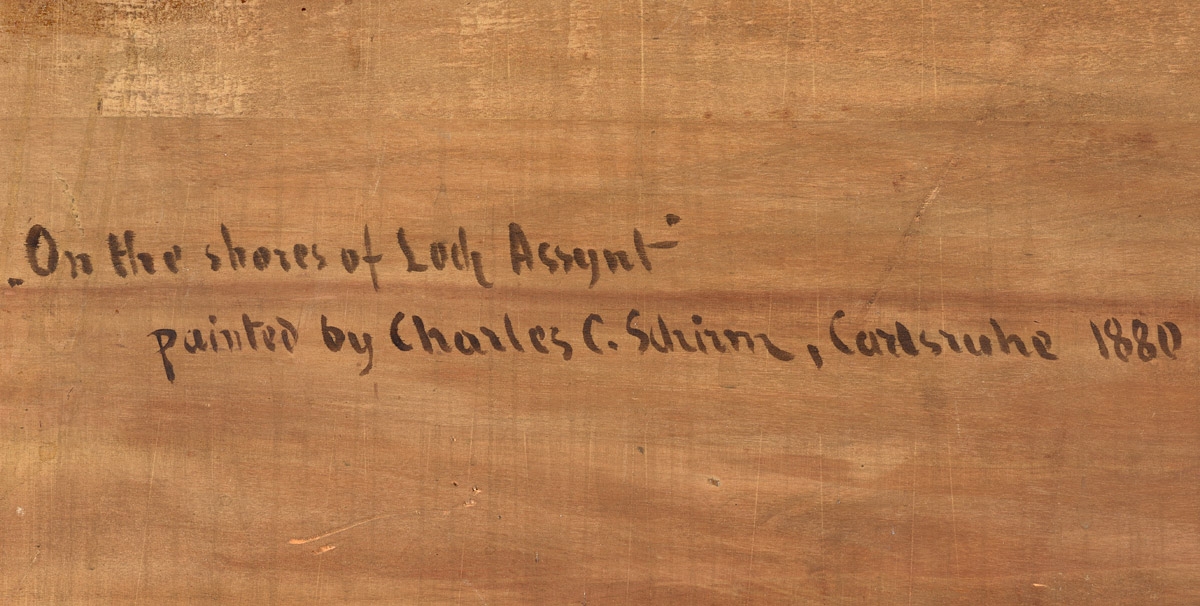 „On the shores of Loch Assynt“
painted by Charles C. Schirm, Carlsruhe 1880